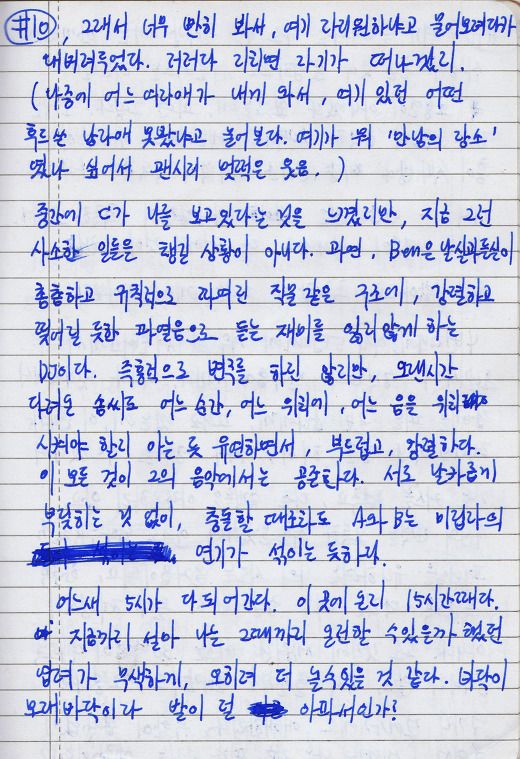 #10, 그래서 너무 만히 봐서, 여기 다리원하냐고 물어보려다가
내버려두었다. 저러다 지리면 자기가 떠나겠지.
(나중에 어느 여자애가 내게 와서, 여기 있던 어떤
후드쓴 남자애 못봤냐고 물어본다. 여기가 뭐 '만남의 장소'
였나 싶어서 괜시리 멋적은 웃음.)
중간에 C가 나를 보고있다는 것을 느꼈지만, 지금 그런
사소한 일들을 챙길 상황이 아니다. 과연, Ben은 날실과 씨실이
촘촘하고 규칙적으로 짜여진 직물같은 구조에, 강렬하고
찢어질 듯한 파열음으로 듣는 재미를 잃지않게 하는
DJ이다. 즉흥적으로 변주를 하진 않지만, 오랜시간
다져온 솜씨로 어느 순간, 어느 위치에, 어느 음을 위치
시켜야 할지 아는 듯 유연하면서, 부드럽고, 강렬하다.
이 모든 것이 그의 음악에서는 공존한다. 서로 날카롭게
부딪히는 것 없이, 충돌할 때조차도 A와 B는 미립자의
연기가 섞이는 듯하다.
어느새 5시가 다 되어간다. 이 곳에 온지 15시간째다.
지금까지 설마 나는 그때까지 온전할 수있을까 했던
염려가 무색하게, 오히려 더 놀수있을 것 같다. 바닥이
모래바닥이라 발이 덜 아파서인가!